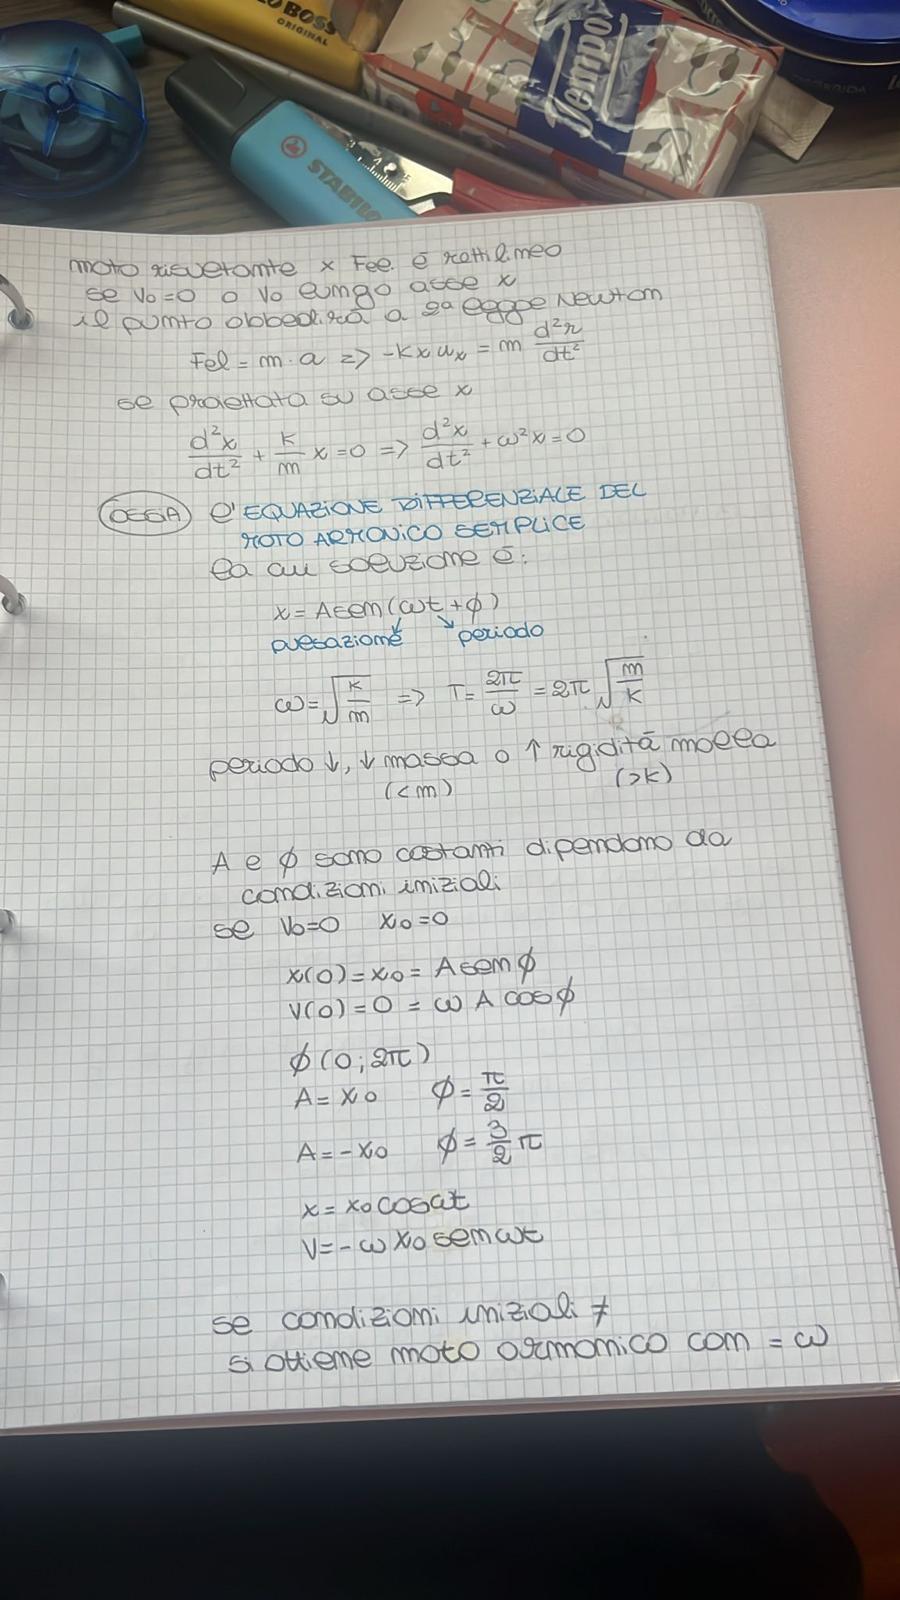 BOSS
ORIGINAL
Tempo
STABILO
moto risultante x Fel. è rettilineo
se V₀=0 o V₀ lungo asse x
il punto obbedirà a 2ª legge Newton
Fel = m · a => -kx uₓ = m d²r/dt²
se proiettata su asse x
d²x/dt² + k/m x = 0 => d²x/dt² + ω²x = 0
OSSIA l'EQUAZIONE DIFFERENZIALE DEL
MOTO ARMONICO SEMPLICE
la cui soluzione è:
x = A sen(ωt + ϕ)
pulsazione periodo
ω = √k/m => T = 2π/ω = 2π √m/k
periodo ↓, ↓ massa o ↑ rigidità molla
(< m) (> k)
A e ϕ sono costanti dipendono da
condizioni iniziali
se V₀=0 x₀=0
x(0) = x₀ = A sen ϕ
V(0) = 0 = ω A cos ϕ
ϕ (0 ; 2π)
A = x₀ ϕ = π/2
A = -x₀ ϕ = 3/2 π
x = x₀ cos ωt
V = - ω x₀ sen ωt
se condizioni iniziali ≠
si ottiene moto armonico con = ω